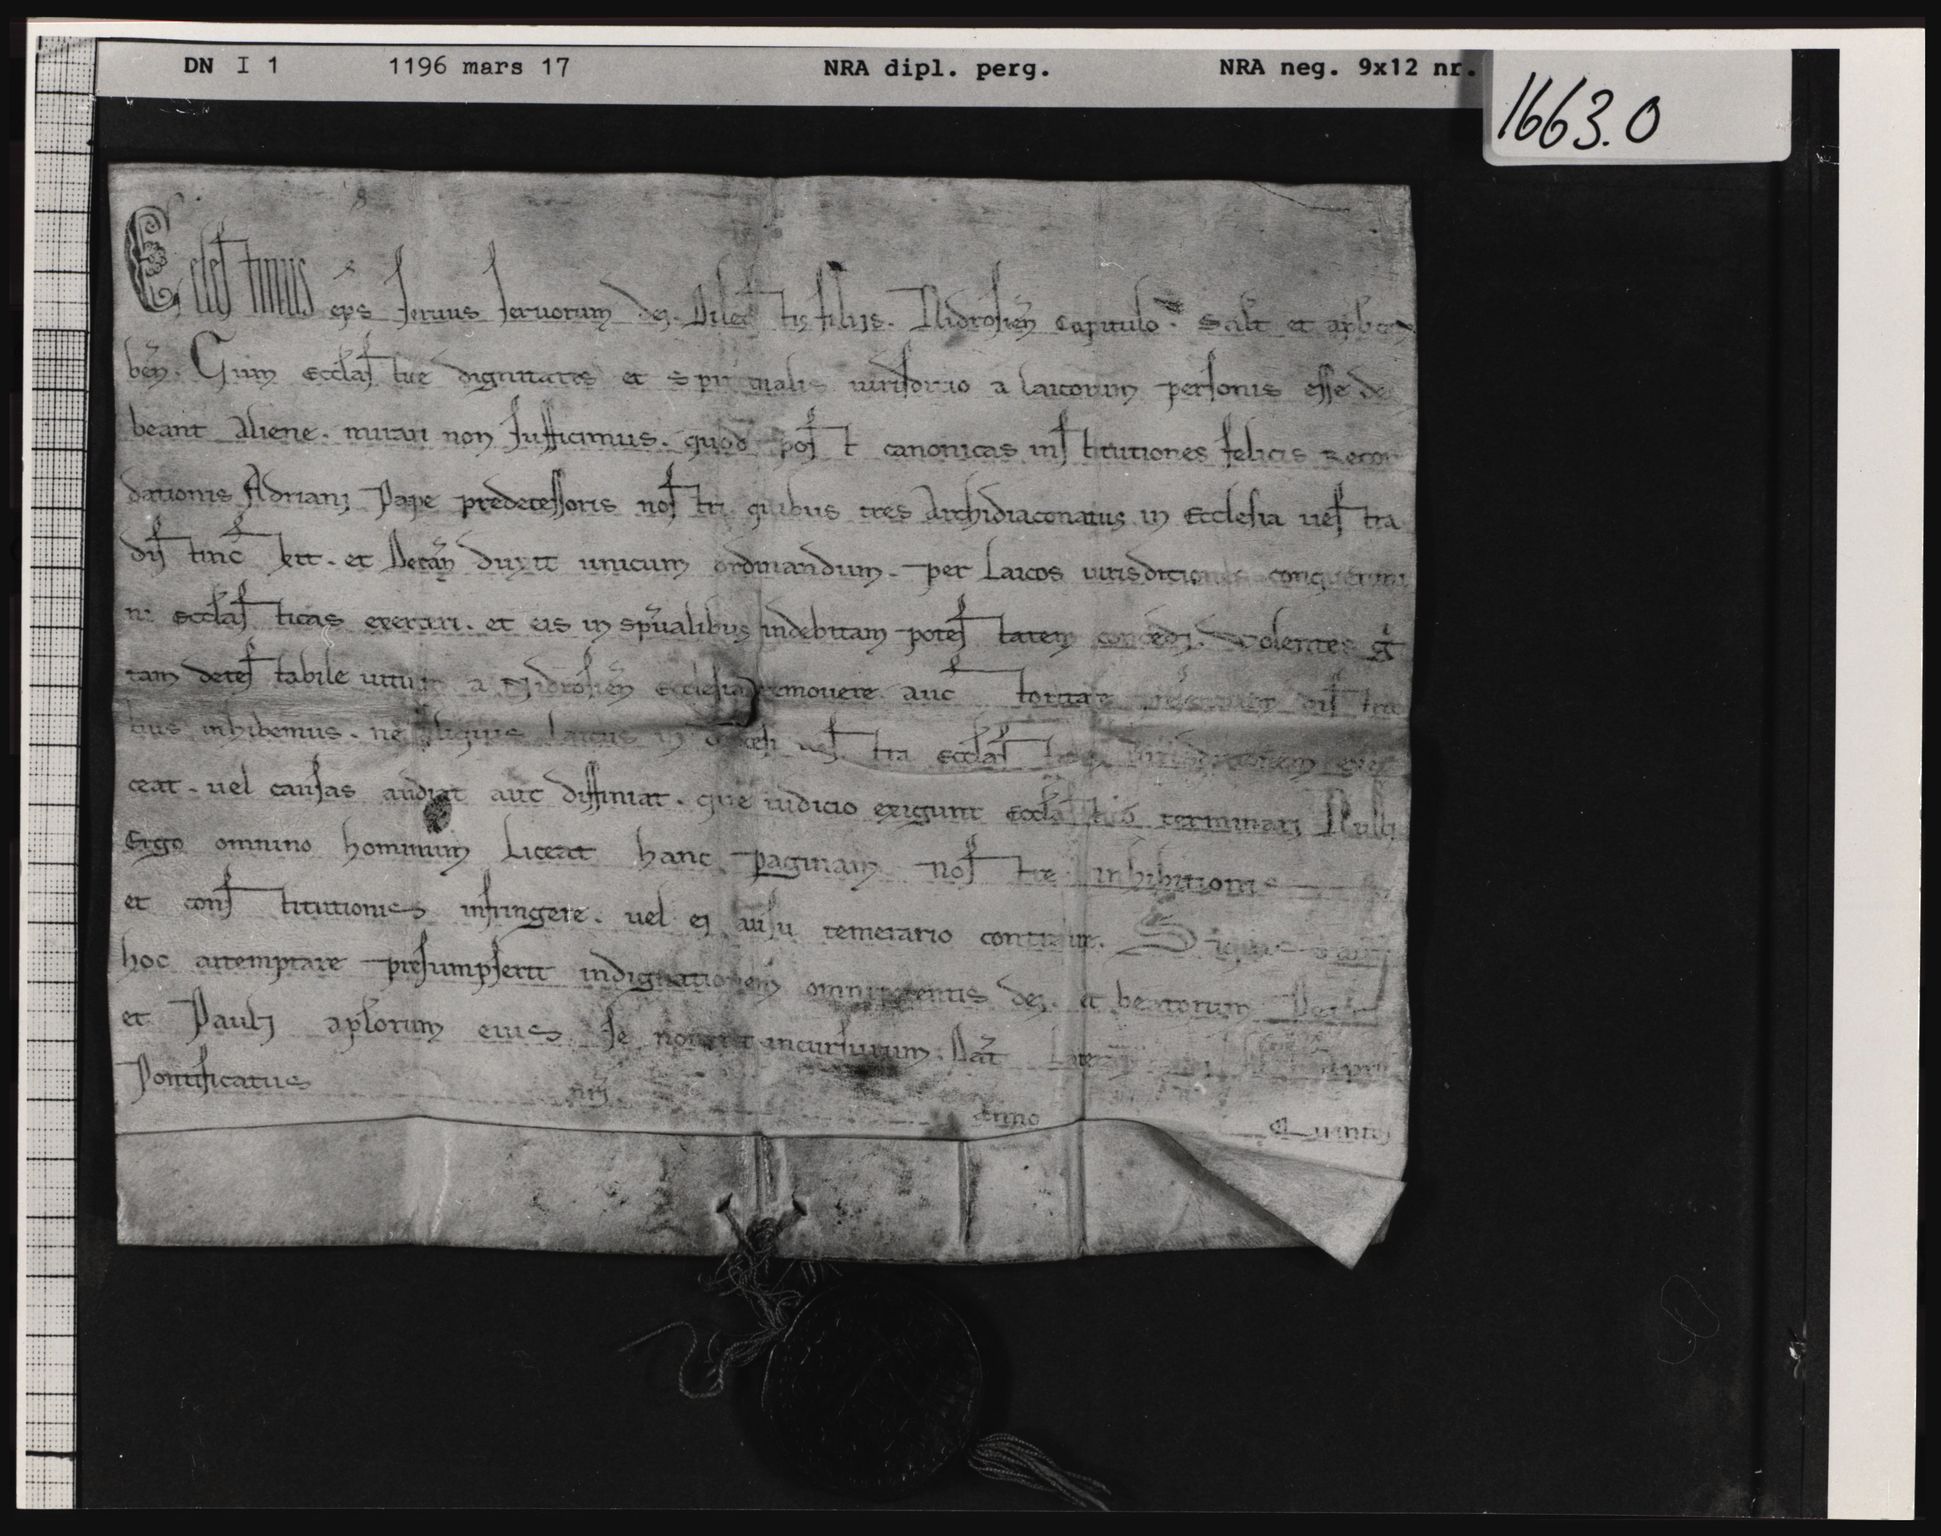 DN I 1 1196 mars 17 NRA dipl. perg. NRA neg. 9x12 nr.
1663.0
Celestinus ep̄s seruus seruorum dei. Dilectis filijs. Nidrosien̄ Capitulo. Salt̄ et ap̄licam̄
ben̄. Cum eccl̄astice dignitates et spiritualis iurisdictio a laicorum personis esse de
beant aliene. mirari non sufficimus. quod post canonicas institutiones felicis recor
dationis Adriani Pape predecessoris nostri quibus tres Archidiaconatus in Ecclesia uestra
distinc xit. et Decan̄ duxit unicum ordinandum. per Laicos iurisdictiones conquerimi
ni eccl̄asticas exerceri. et eis in sp̄ualibus indebitam potestatem concedi. Volentes g̊
tam detestabile uitium a Nidrosien̄ ecclesia remouere. auctoritate presentium distric
tius inhibemus. ne aliquis laicus in diocesi uestra eccl̄asticam iurisdictionem exer
ceat. uel causas audiat aut diffiniat. que iudicio exigunt eccl̄astico terminari Nulli
Ergo omnino hominum Liceat hanc paginam nostre inhibitionis
et constitutionis infringere. uel ei ausu temerario contraire. Siquis autem
hoc attemptare presumpserit indignationem omnipotentis dei. et beatorum Petri
et Pauli apl̄orum eius se nouerit incursurum. Dat̄ Lateran̄ Apr̄
Pontificatus nr̄j Anno Quinto